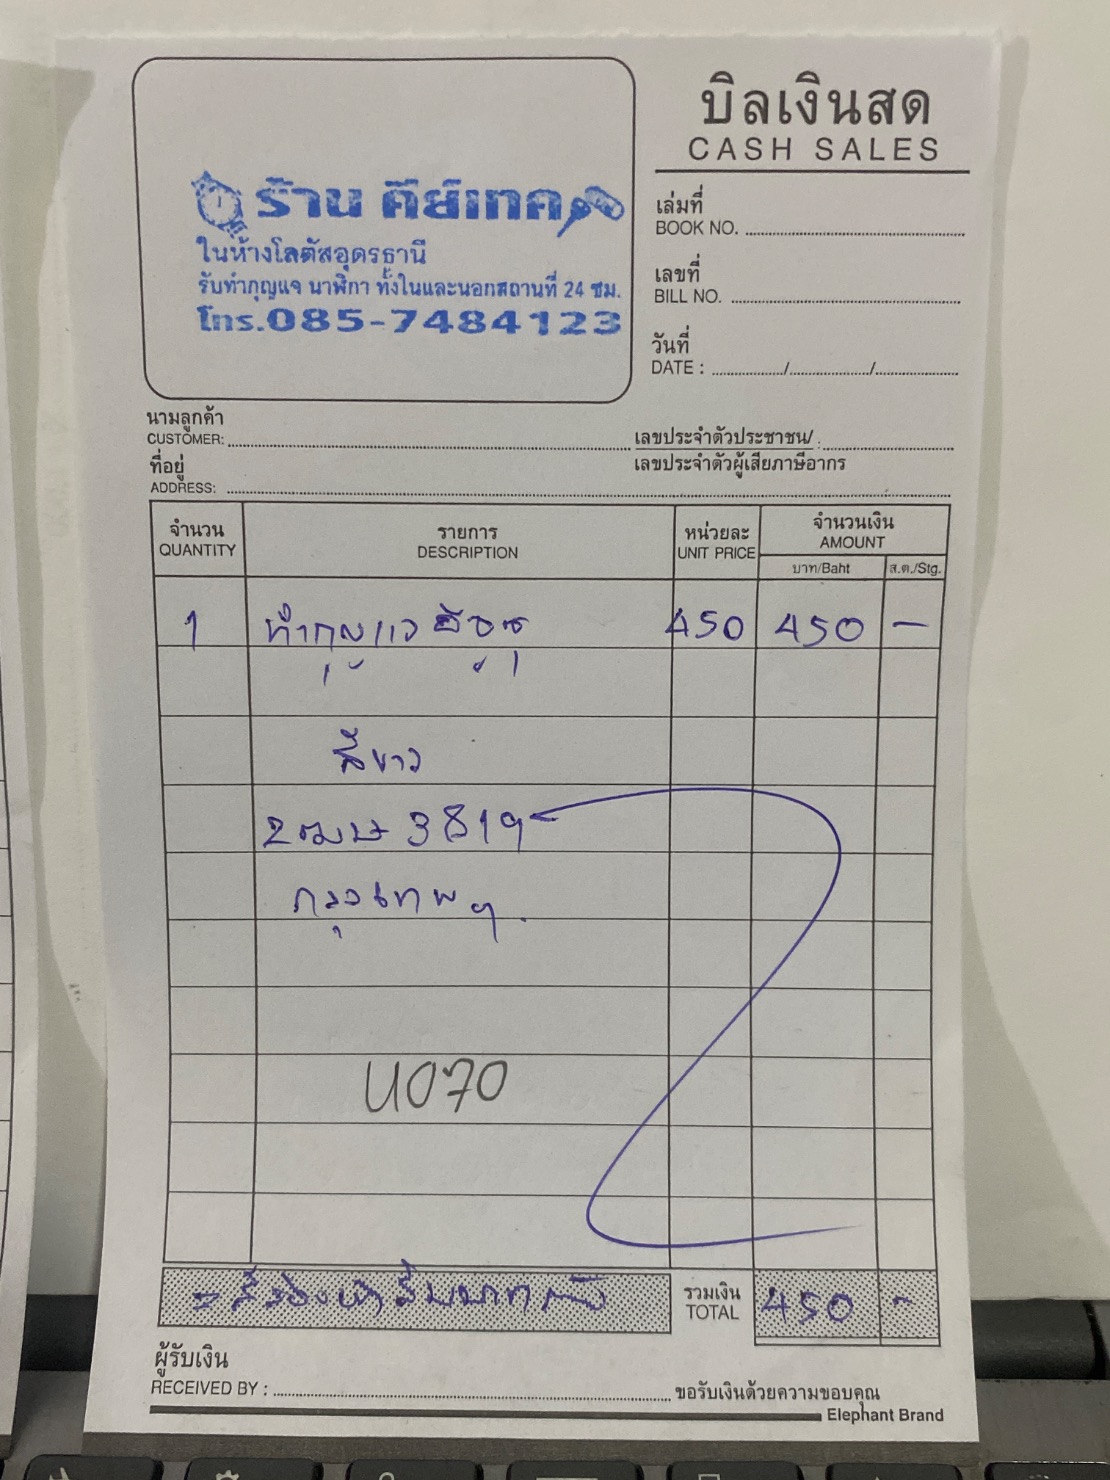 บิลเงินสด
CASH SALES
ร้าน คีย์เทค
ในห้างโลตัสอุดรธานี
รับทำกุญแจ นาฬิกา ทั้งในและนอกสถานที่ 24 ชม.
โทร.085-7484123
เล่มที่
BOOK NO.
เลขที่
BILL NO.
วันที่
DATE : / /
นามลูกค้า
CUSTOMER:
เลขประจำตัวประชาชน/
เลขประจำตัวผู้เสียภาษีอากร
ที่อยู่
ADDRESS:
จำนวน รายการ หน่วยละ จำนวนเงิน
QUANTITY DESCRIPTION UNIT PRICE AMOUNT
บาท/Baht ส.ต./Stg.
1 ทำกุญแจ 450 450 -
สีขาว
2ฒษ 3819
กรุงเทพฯ
U070
รวมเงิน
TOTAL 450 -
ผู้รับเงิน
RECEIVED BY : ขอรับเงินด้วยความขอบคุณ
Elephant Brand